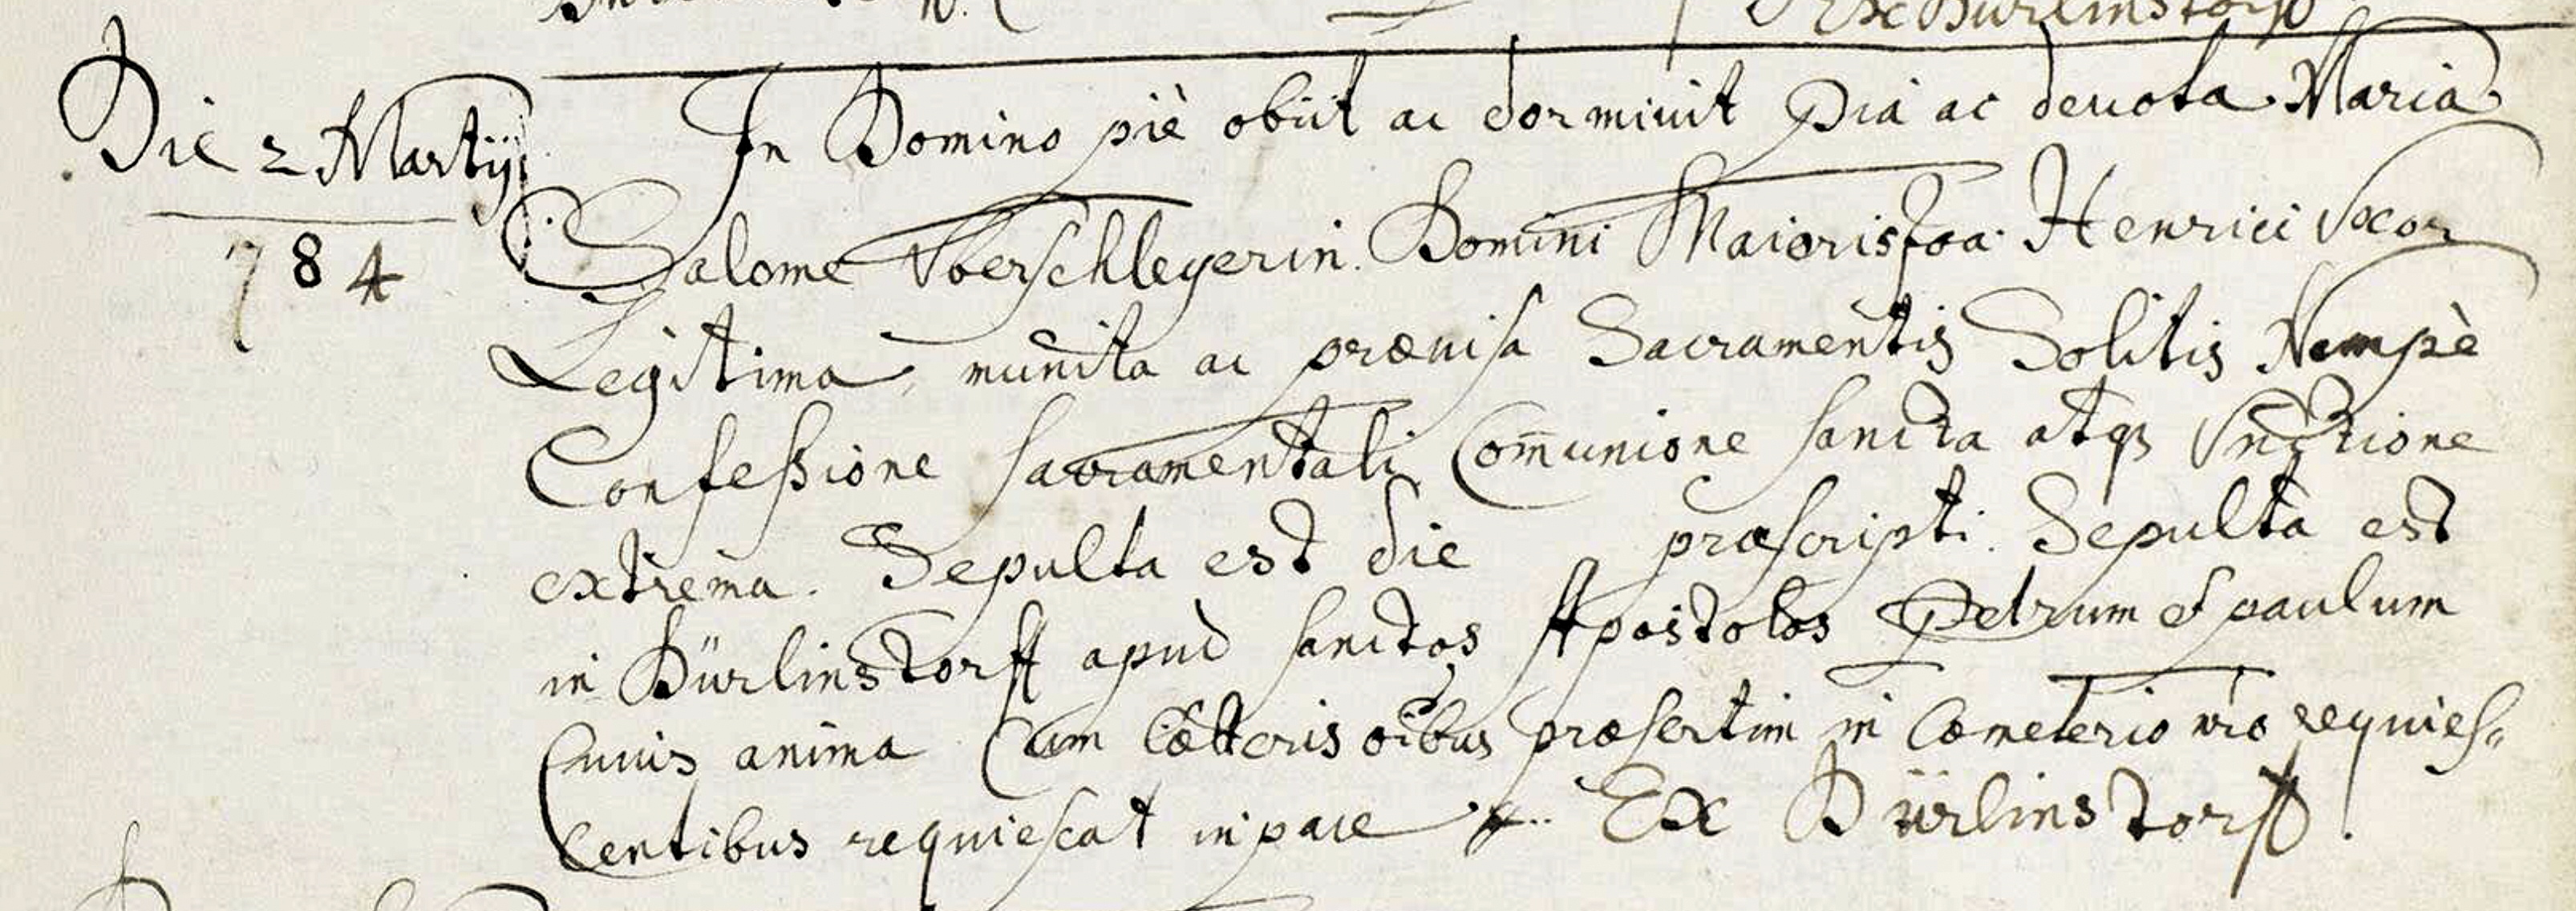 Ex Bürlinstorff
In Domino piè obiit ac dormiuit Pia ac deuota Maria
Die 2 Martij
Salome Oberschleyerin. Domini Maioris Henrici Vxor
784
Legitima, munita ac præuisa Sacramentis Solitis Nempè
Confeßione sacramentali Com̄unione sancta atqз Vnctione
extrema. Sepulta est die præscripti. Sepulta est
in Bürlinstorff apud sanctos Apostolos Petrum et paulum
Cuuis anima Cum Cæteris oibus præsertim in Cœmeterio nr̄o requies„
Centibus requiescat in pace Ex Bürlinstorff.